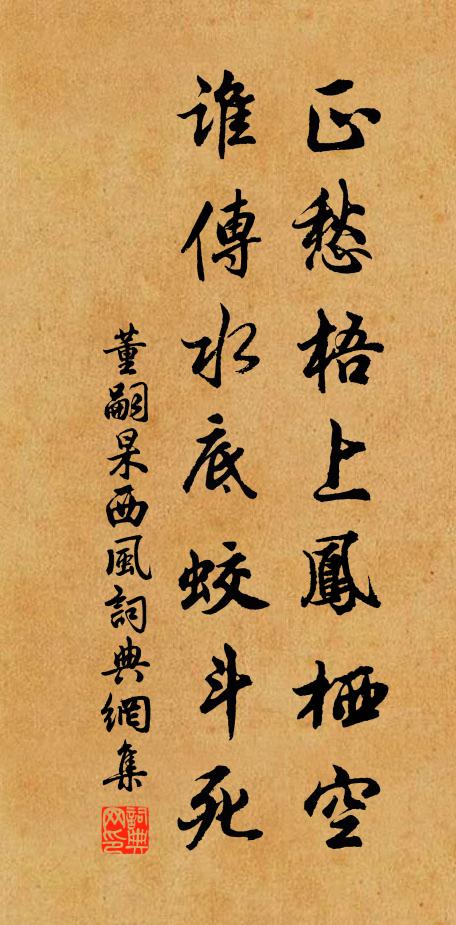 正愁梧上鳳栖空
誰傳水底蛟斗死
董嗣杲西風詞典網集
詞典网印